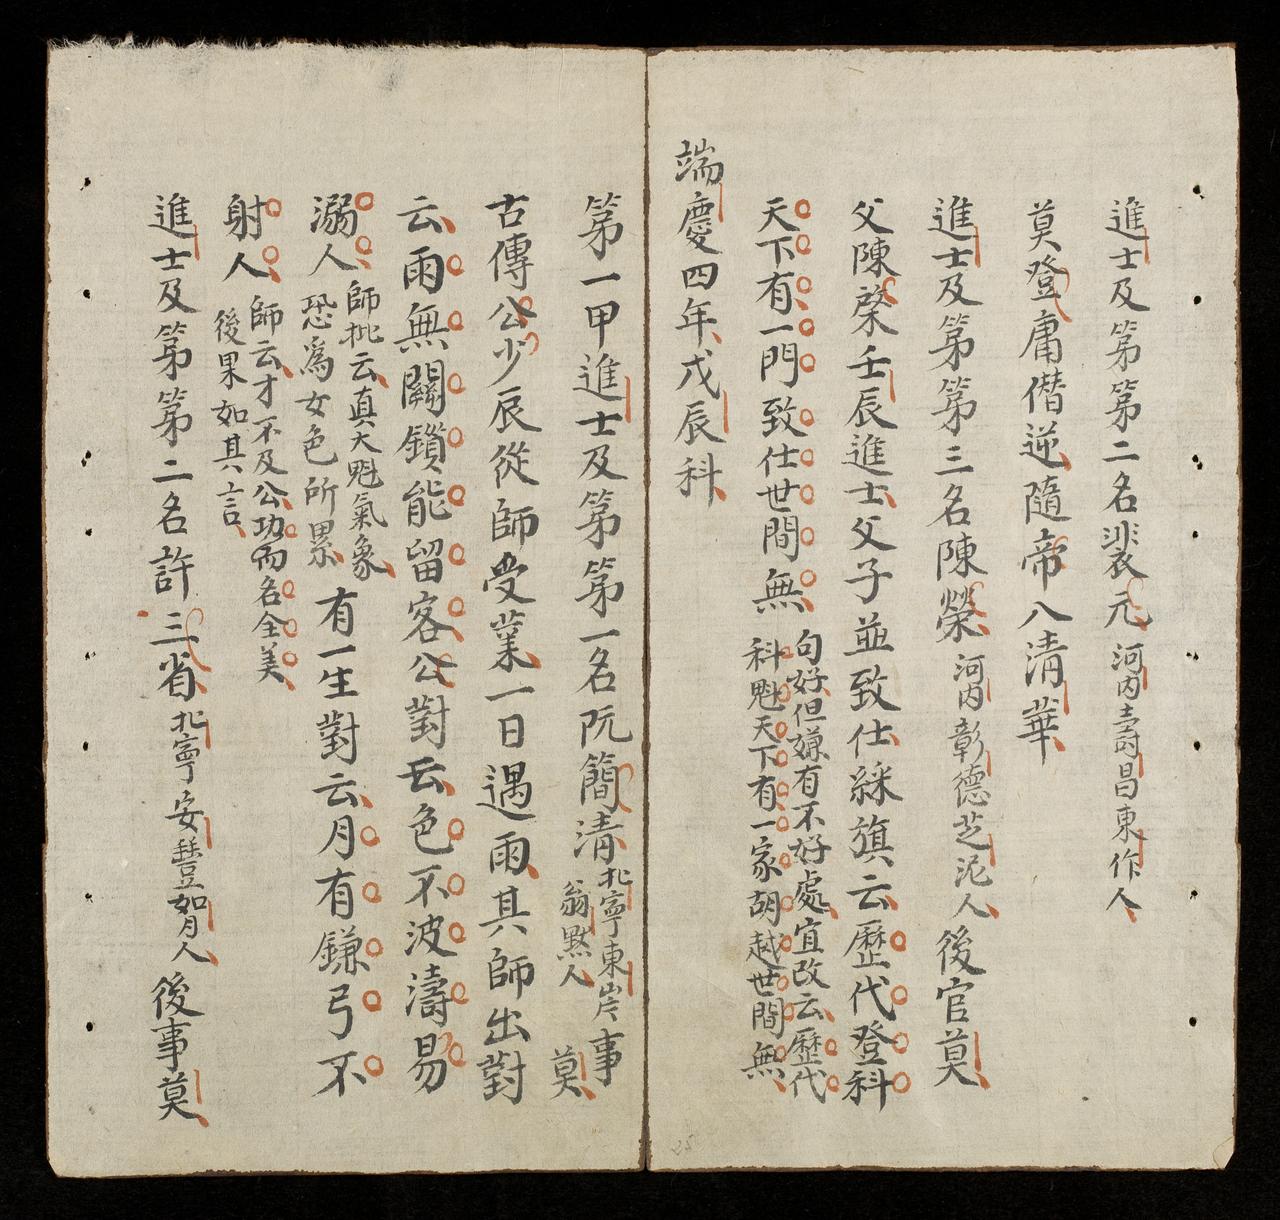 進士及第第二名裴元河内壽昌東作人
莫登庸僭逆隨帝入清華
進士及第第三名陳榮河内彰德芝泥人後官莫
父陳棨壬辰進士父子並致仕綵旗云歷代登科
天下有一門致仕世間無
句好但嫌有不好處宜改云歷代
科魁天下有一家胡越世間無
端慶四年戊辰科
第一甲進士及第第一名阮簡清
北寧東岸
翁默人
事莫
古傳公少辰從師受業一日遇雨其師出對
云雨無關鎖能留客公對云色不波濤易
溺人
師批云真大魁氣象
恐爲女色所累
有一生對云月有鎌弓不
射人
師云才不及公功而名全美
後果如其言
進士及第第二名許三省北寧安豐如月人後事莫